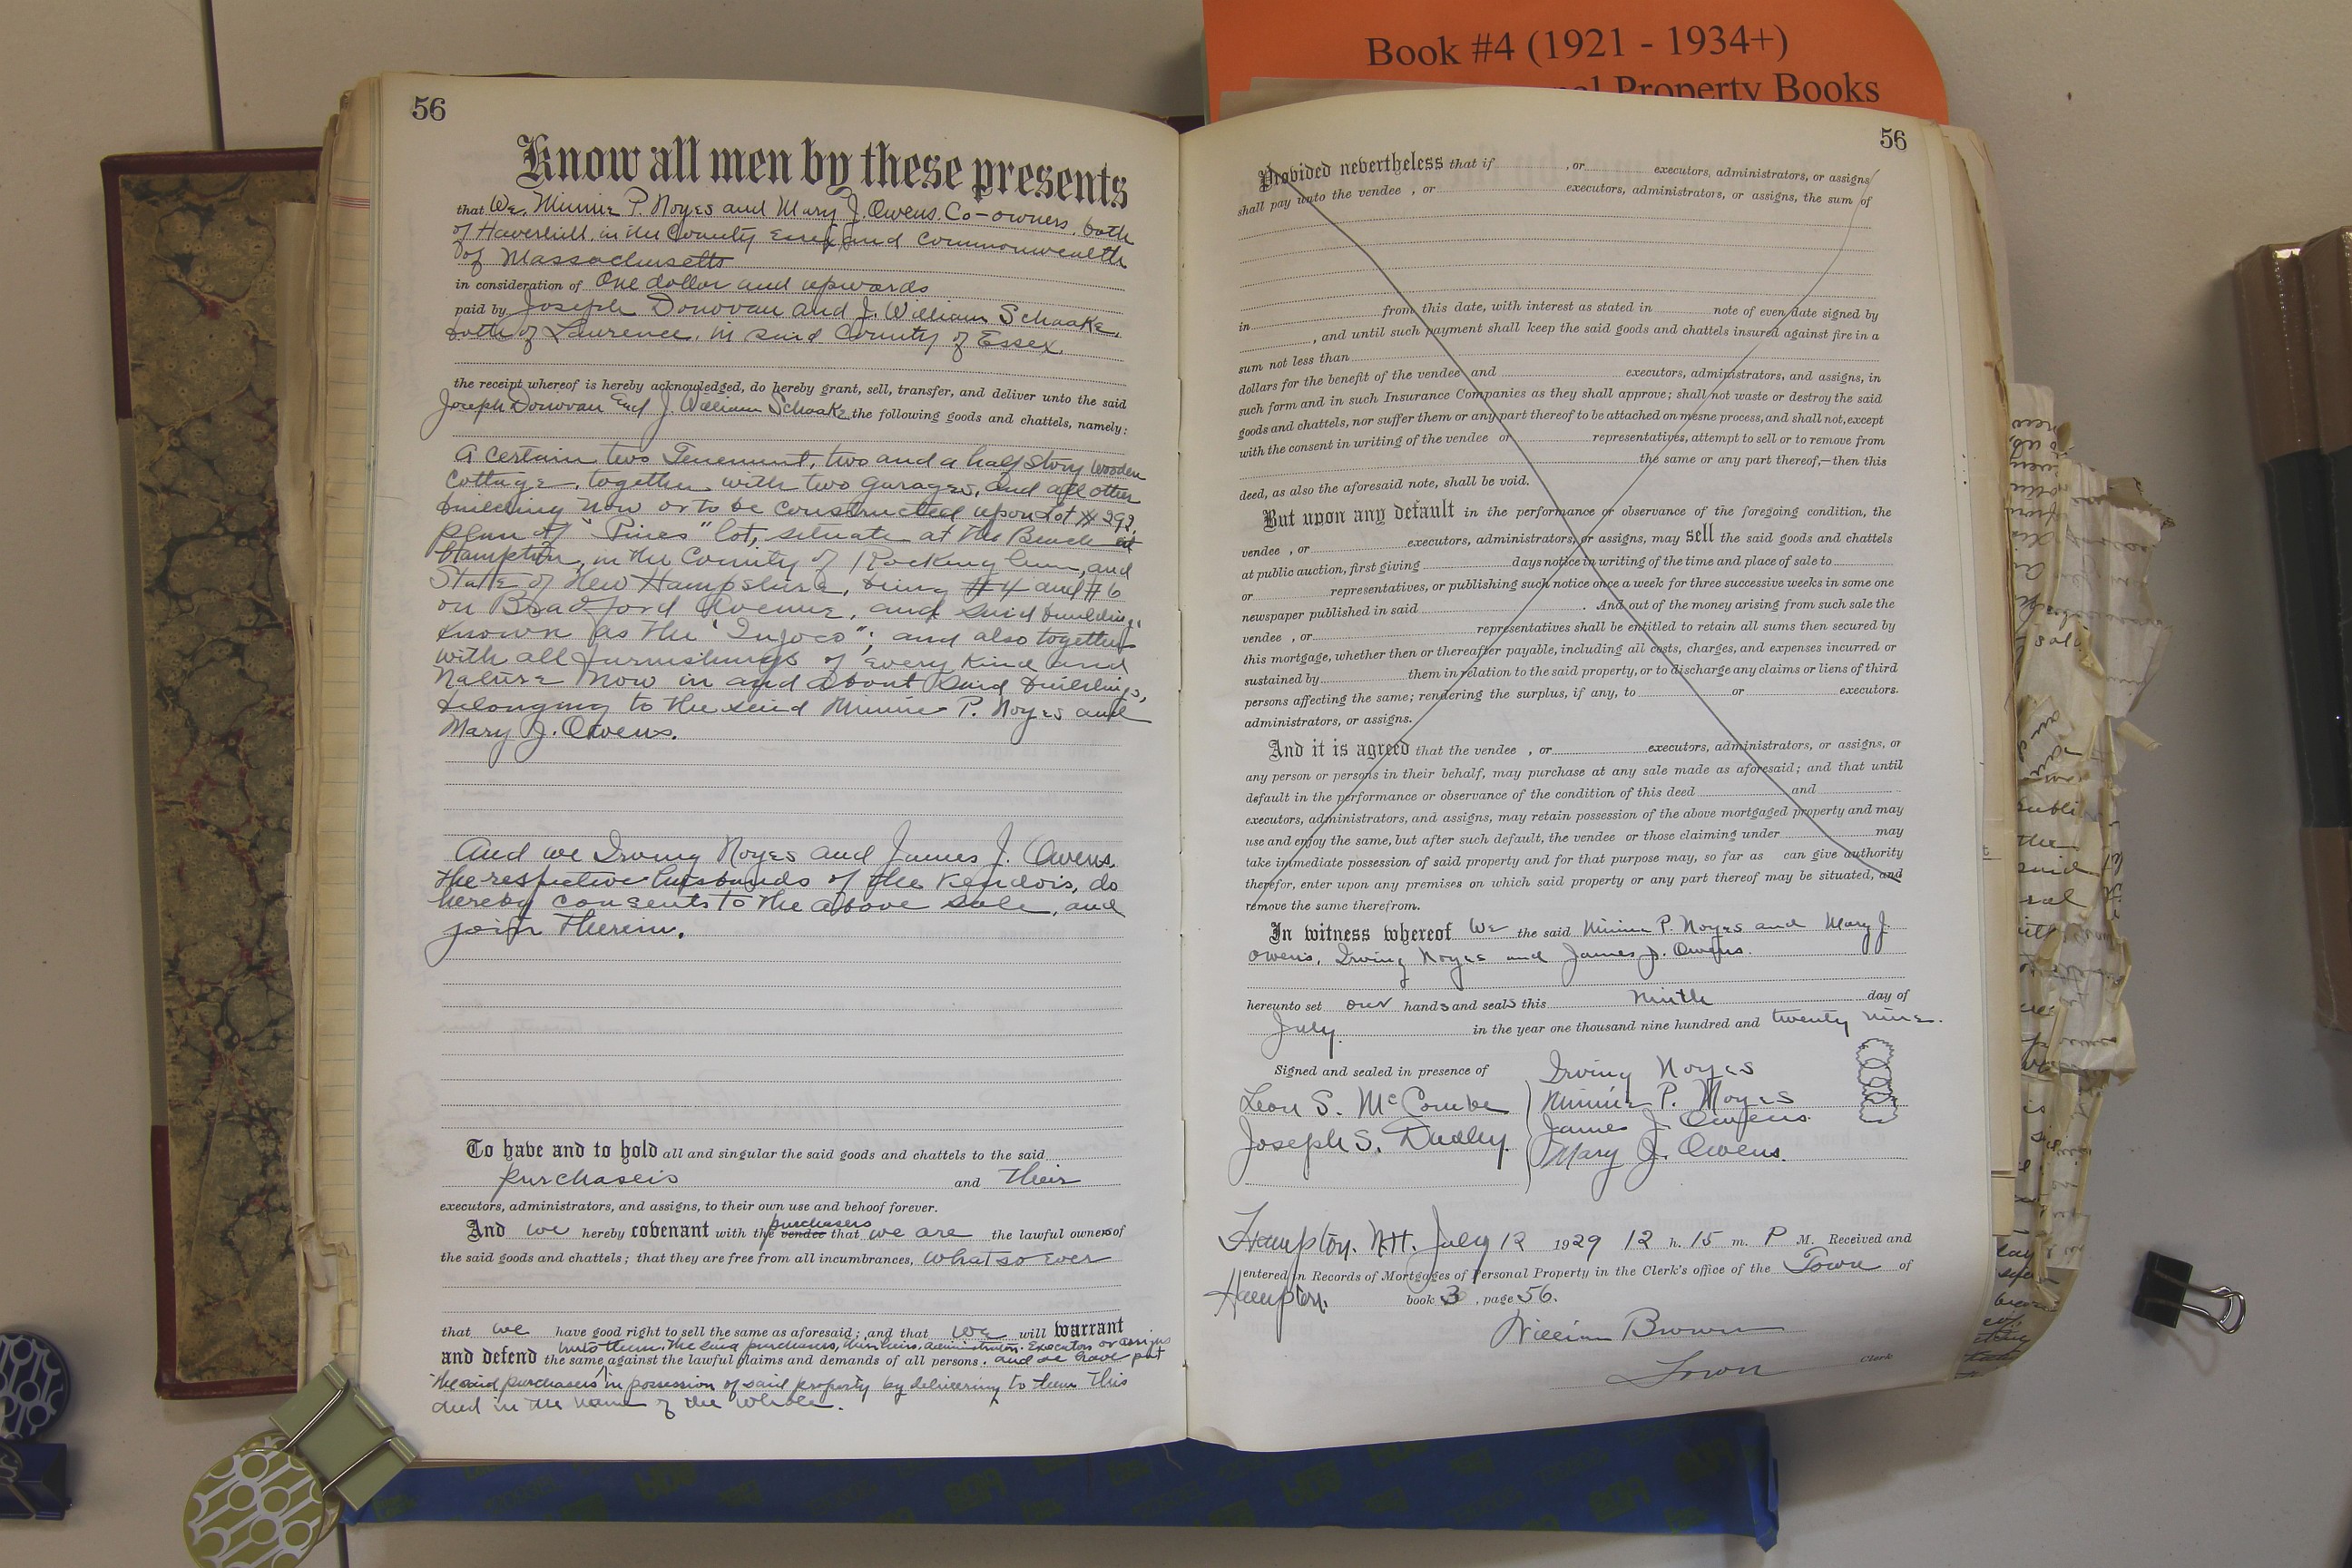 Book #4 (1921 - 1934+)
Property Books
56
Know all men by these presents
that We, Minnie P. Noyes and Mary J. Owens. Co-owners, both
of Haverhill, in the County Essex and Commonwealth
of Massachusetts
in consideration of One dollar and upwards
paid by Joseph Donovan and J. William Schaake,
both of Lawrence, in said County of Essex.
the receipt whereof is hereby acknowledged, do hereby grant, sell, transfer, and deliver unto the said
Joseph Donovan and J. William Schaake the following goods and chattels, namely:
A certain two Tenement, two and a half Story wooden
Cottage, together with two garages, and all other
building now or to be constructed upon Lot # 292,
plan of "Pines" lot, situate at the Beach at
Hampton, in the County of Rockingham, and
State of New Hampshire, being #4 and #6
on Bradford Avenue, and said building
known as the "Injoco"; and also together
with all furnishings of every kind and
nature now in and about said buildings,
belonging to the said Minnie P. Noyes and
Mary J. Owens.
And we Irving Noyes and James J. Owens,
the respective husbands of the Vendois, do
hereby consents to the above sale, and
join therein.
To have and to hold all and singular the said goods and chattels to the said
purchaseis and their
executors, administrators, and assigns, to their own use and behoof forever.
And we hereby covenant with the purchasers vendee that we are the lawful owners of
the said goods and chattels; that they are free from all incumbrances, whatsoever
that we have good right to sell the same as aforesaid; and that we will warrant
unto them, the said purchasers, their heirs, administrators, Executors or assigns
and defend the same against the lawful claims and demands of all persons. and we have put
the said purchasers in possession of said property by delivering to them this
deed in the name of the whole.
56
Provided nevertheless that if , or executors, administrators, or assigns
shall pay unto the vendee , or executors, administrators, or assigns, the sum of
in from this date, with interest as stated in note of even date signed by
, and until such payment shall keep the said goods and chattels insured against fire in a
sum not less than
dollars for the benefit of the vendee and executors, administrators, and assigns, in
such form and in such Insurance Companies as they shall approve; shall not waste or destroy the said
goods and chattels, nor suffer them or any part thereof to be attached on mesne process, and shall not, except
with the consent in writing of the vendee or representatives, attempt to sell or to remove from
the same or any part thereof,—then this
deed, as also the aforesaid note, shall be void.
But upon any default in the performance or observance of the foregoing condition, the
vendee , or executors, administrators, or assigns, may sell the said goods and chattels
at public auction, first giving days notice in writing of the time and place of sale to
or representatives, or publishing such notice once a week for three successive weeks in some one
newspaper published in said . And out of the money arising from such sale the
vendee , or representatives shall be entitled to retain all sums then secured by
this mortgage, whether then or thereafter payable, including all costs, charges, and expenses incurred or
sustained by them in relation to the said property, or to discharge any claims or liens of third
persons affecting the same; rendering the surplus, if any, to or executors.
administrators, or assigns.
And it is agreed that the vendee , or executors, administrators, or assigns, or
any person or persons in their behalf, may purchase at any sale made as aforesaid; and that until
default in the performance or observance of the condition of this deed and
executors, administrators, and assigns, may retain possession of the above mortgaged property and may
use and enjoy the same, but after such default, the vendee or those claiming under may
take immediate possession of said property and for that purpose may, so far as can give authority
therefor, enter upon any premises on which said property or any part thereof may be situated, and
remove the same therefrom.
In witness whereof We the said Minnie P. Noyes and Mary J.
Owens, Irving Noyes and James J. Owens.
hereunto set our hands and seals this Ninth day of
July in the year one thousand nine hundred and twenty nine.
Signed and sealed in presence of
Irving Noyes
Leon S. McCombe
Minnie P. Noyes
James J. Owens
Joseph S. Dudley.
Mary J. Owens.
Hampton, N.H. July 12 1929 12 h. 15 m. P M. Received and
entered in Records of Mortgages of Personal Property in the Clerk's office of the Town of
Hampton. book 3 , page 56.
William Brown
Town Clerk